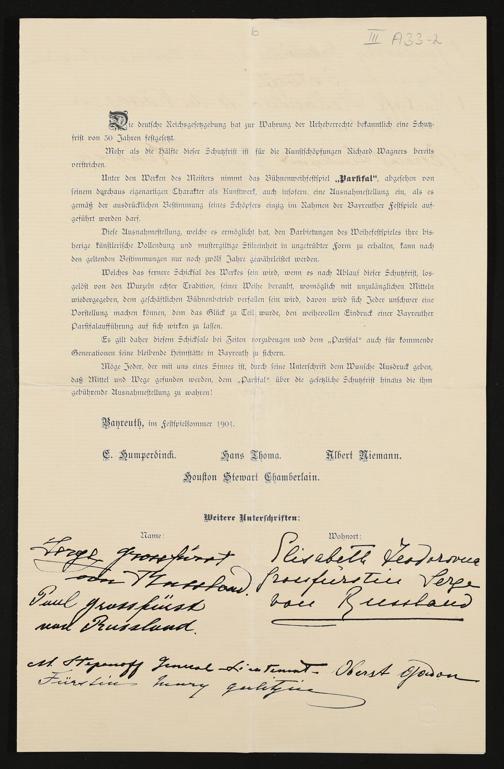 b
III A33-2
Die deutsche Reichsgesetzgebung hat zur Wahrung der Urheberrechte bekanntlich eine Schutz-
frist von 30 Jahren festgesetzt.
Mehr als die Hälfte dieser Schutzfrist ist für die Kunstschöpfungen Richard Wagners bereits
verstrichen.
Unter den Werken des Meisters nimmt das Bühnenweihfestspiel „Parsifal", abgesehen von
seinem durchaus eigenartigen Charakter als Kunstwerk, auch insofern eine Ausnahmestellung ein, als es
gemäß der ausdrücklichen Bestimmung seines Schöpfers einzig im Rahmen der Bayreuther Festspiele auf-
geführt werden darf.
Diese Ausnahmestellung, welche es ermöglicht hat, den Darbietungen des Weihefestspieles ihre bis-
herige künstlerische Vollendung und mustergültige Stileinheit in ungetrübter Form zu erhalten, kann nach
den geltenden Bestimmungen nur noch zwölf Jahre gewährleistet werden.
Welches das fernere Schicksal des Werkes sein wird, wenn es nach Ablauf dieser Schutzfrist, los-
gelöst von den Wurzeln echter Tradition, seiner Weihe beraubt, womöglich mit unzulänglichen Mitteln
wiedergegeben, dem geschäftlichen Bühnenbetrieb verfallen sein wird, davon wird sich Jeder unschwer eine
Vorstellung machen können, dem das Glück zu Teil wurde, den weihevollen Eindruck einer Bayreuther
Parsifalaufführung auf sich wirken zu lassen.
Es gilt daher diesem Schicksale bei Zeiten vorzubeugen und dem „Parsifal" auch für kommende
Generationen seine bleibende Heimstätte in Bayreuth zu sichern.
Möge Jeder, der mit uns eines Sinnes ist, durch seine Unterschrift dem Wunsche Ausdruck geben,
daß Mittel und Wege gefunden werden, dem „Parsifal" über die gesetzliche Schutzfrist hinaus die ihm
gebührende Ausnahmestellung zu wahren!
Bayreuth, im Festspielsommer 1901.
E. Humperdinck. Hans Thoma. Albert Niemann.
Houston Stewart Chamberlain.
Weitere Unterschriften:
Name: Wohnort:
Serge Grossfürst
von Russland.
Elisabeth Feodorovna
Grossfürstin Serge
von Russland
Paul Grossfürst
von Russland.
M. Stepanoff General-Lieutenant- Oberst
Fürstin Mary Galitzin